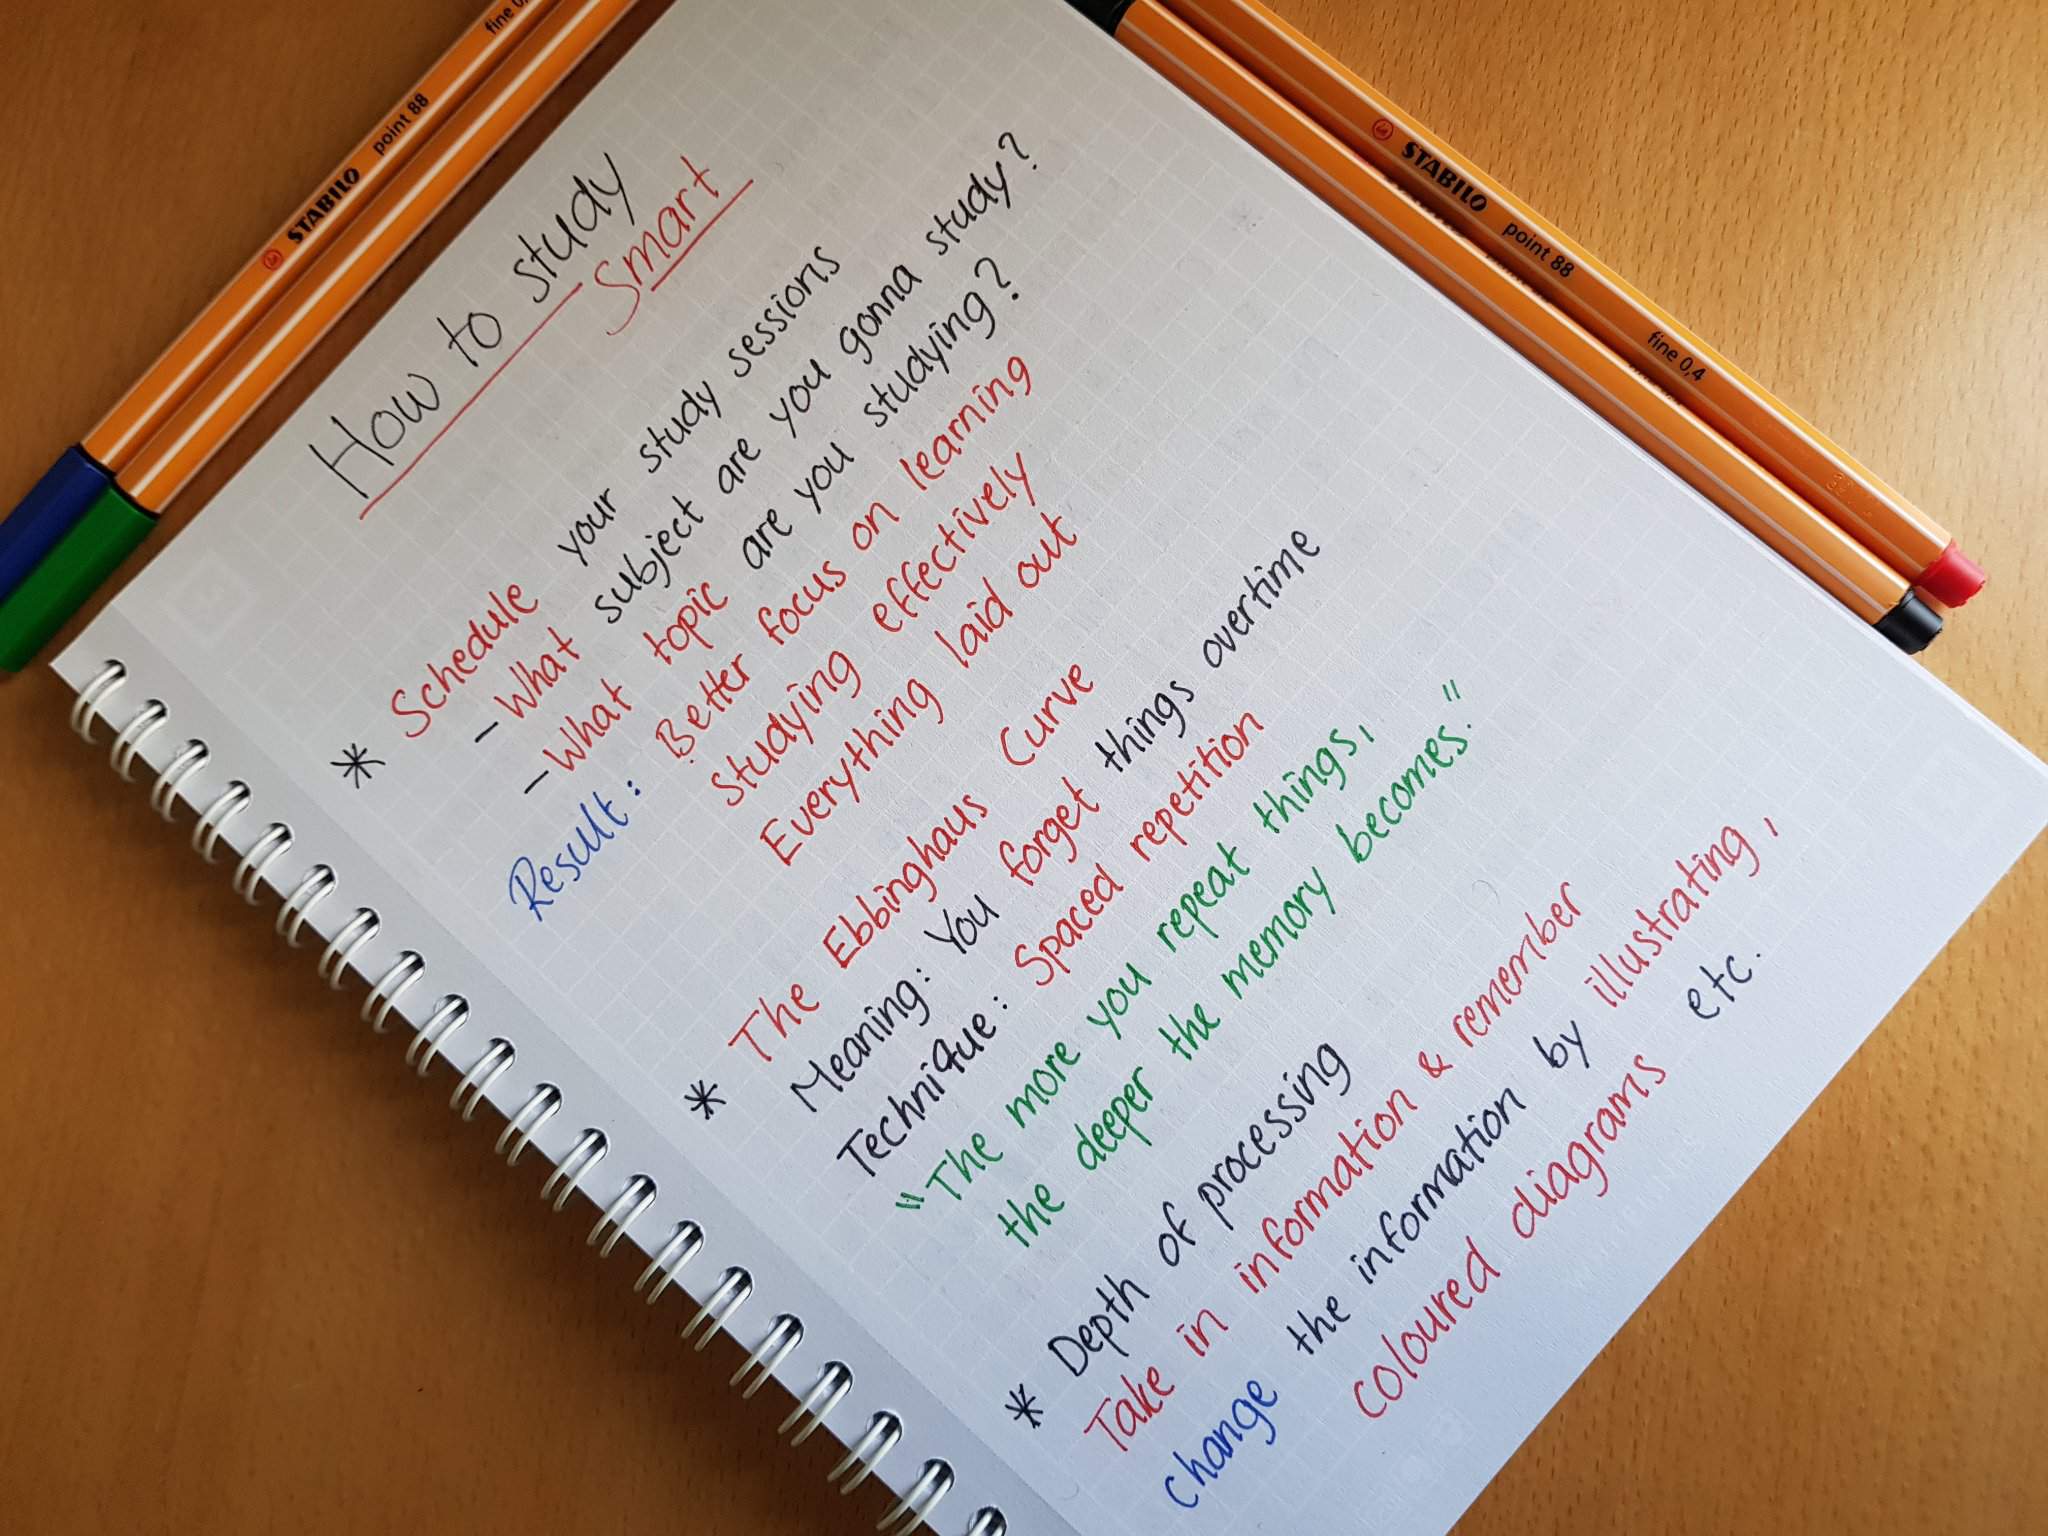 How to study
Smart
* Schedule your study sessions
- What subject are you gonna study?
- What topic are you studying?
Result: Better focus on learning
Studying effectively
Everything laid out
* The Ebbinghaus Curve
Meaning: You forget things overtime
Technique: Spaced repetition
"The more you repeat things,
the deeper the memory becomes."
* Depth of processing
Take in information & remember
change the information by illustrating,
coloured diagrams etc.
STABILO point 88 fine 0,
STABILO point 88 fine 0,4